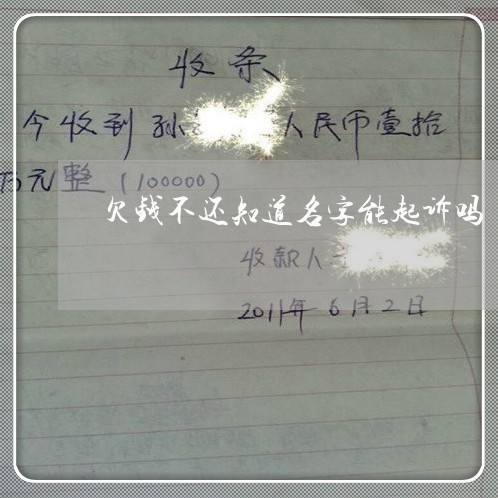 收条
今收到孙 人民币壹拾
万元整(100000)
欠钱不还知道名字能起诉吗
收款人
2011年6月2日